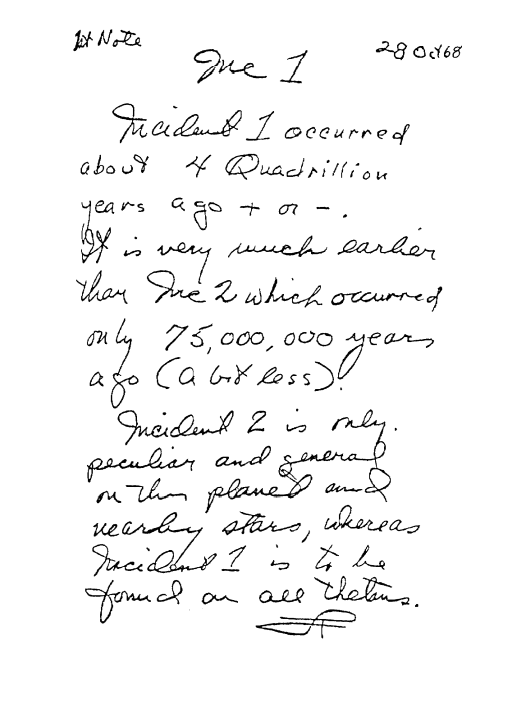 1st Note 28 Oct 68
Inc 1
Incident 1 occurred
about 4 Quadrillion
years ago + or -.
It is very much earlier
than Inc 2 which occurred
only 75,000,000 years
ago (a bit less).
Incident 2 is only
peculiar and general
on this planet and
nearby stars, whereas
Incident 1 is to be
found on all thetans.